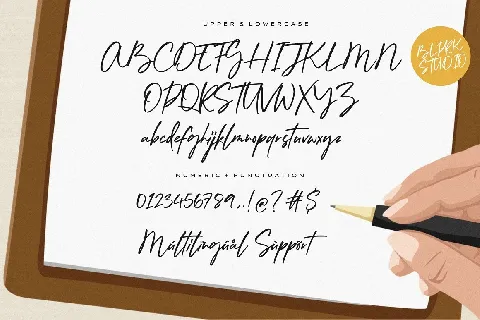 UPPER & LOWERCASE
ABCDEFGHIJKLMN
OPQRSTUVWXYZ
abcdefghijklmnopqrstuvwxyz
NUMERIC + PUNCTUATION
0123456789..!@?#$
Múltilingúàl Sùppört
BLNK
STUDIO